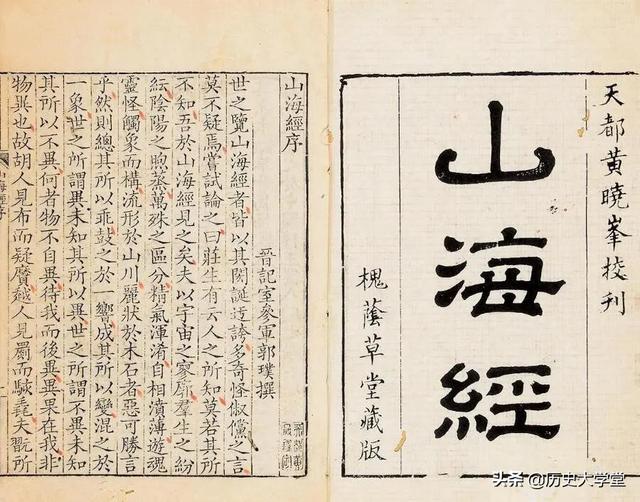 天都黄曉峯校刊
山海經
槐蔭草堂藏版
山海經序
晉記室參軍郭璞撰
世之覽山海經者皆以其閎誕迂誇多奇怪俶儻之言
莫不疑焉嘗試論之曰莊生有云人之所知莫若其所
不知吾於山海經見之矣夫以宇宙之寥廓羣生之紛
紜陰陽之煦蒸萬殊之區分精氣渾淆自相濆薄遊魂
靈怪觸象而構流形於山川麗狀於木石者惡可勝言
乎然則總其所以乖鼓之於一響成其所以變混之於
一象世之所謂異未知其所以異世之所謂不異未知
其所以不異何者物不自異待我而後異異果在我非
物異也故胡人見布而疑黂越人見罽而駭毳夫翫所
山海經序
头条 @历史大学堂